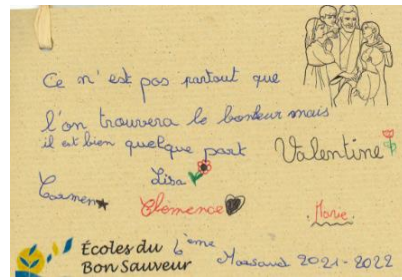 Ce n'est pas partout que
l'on trouvera le bonheur mais
il est bien quelque part
Valentine
Carmen
Lisa
Clémence
Marie
Écoles du
Bon Sauveur
6ème
2021-2022